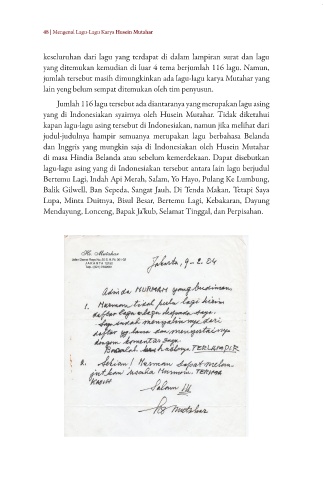 48 | Mengenal Lagu-Lagu Karya Husein Mutahar
keseluruhan dari lagu yang terdapat di dalam lampiran surat dan lagu
yang ditemukan kemudian di luar 4 tema berjumlah 116 lagu. Namun,
jumlah tersebut masih dimungkinkan ada lagu-lagu karya Mutahar yang
lain yeng belum sempat ditemukan oleh tim penyusun.
Jumlah 116 lagu tersebut ada diantaranya yang merupakan lagu asing
yang di Indonesiakan syairnya oleh Husein Mutahar. Tidak diketahui
kapan lagu-lagu asing tersebut di Indonesiakan, namun jika melihat dari
judul-judulnya hampir semuanya merupakan lagu berbahasa Belanda
dan Inggris yang mungkin saja di Indonesiakan oleh Husein Mutahar
di masa Hindia Belanda atau sebelum kemerdekaan. Dapat disebutkan
lagu-lagu asing yang di Indonesiakan tersebut antara lain lagu berjudul
Bertemu Lagi, Indah Api Merah, Salam, Yo Hayo, Pulang Ke Lumbung,
Balik Gilwell, Ban Sepeda, Sangat Jauh, Di Tenda Makan, Tetapi Saya
Lupa, Minta Duitnya, Bisul Besar, Bertemu Lagi, Kebakaran, Dayung
Mendayung, Lonceng, Bapak Ja'kub, Selamat Tinggal, dan Perpisahan.
H. Mutahar
JAKARTA
Jakarta, 9-2.84
Adinda HURMAH yang budiman,
1. Harmam tidak perlu lagi kirim
daftar lagu kepada saya.
Saya sudah menyalin nya dari
daftar yg. lama dan mengertai nya
dengan komentar saya.
hasilnya TERLAMPIR
2. Sekian! Harmam dapat melan
jutkan usaha Harmam. TERIMA
KASIH
Salam
H. Mutahar